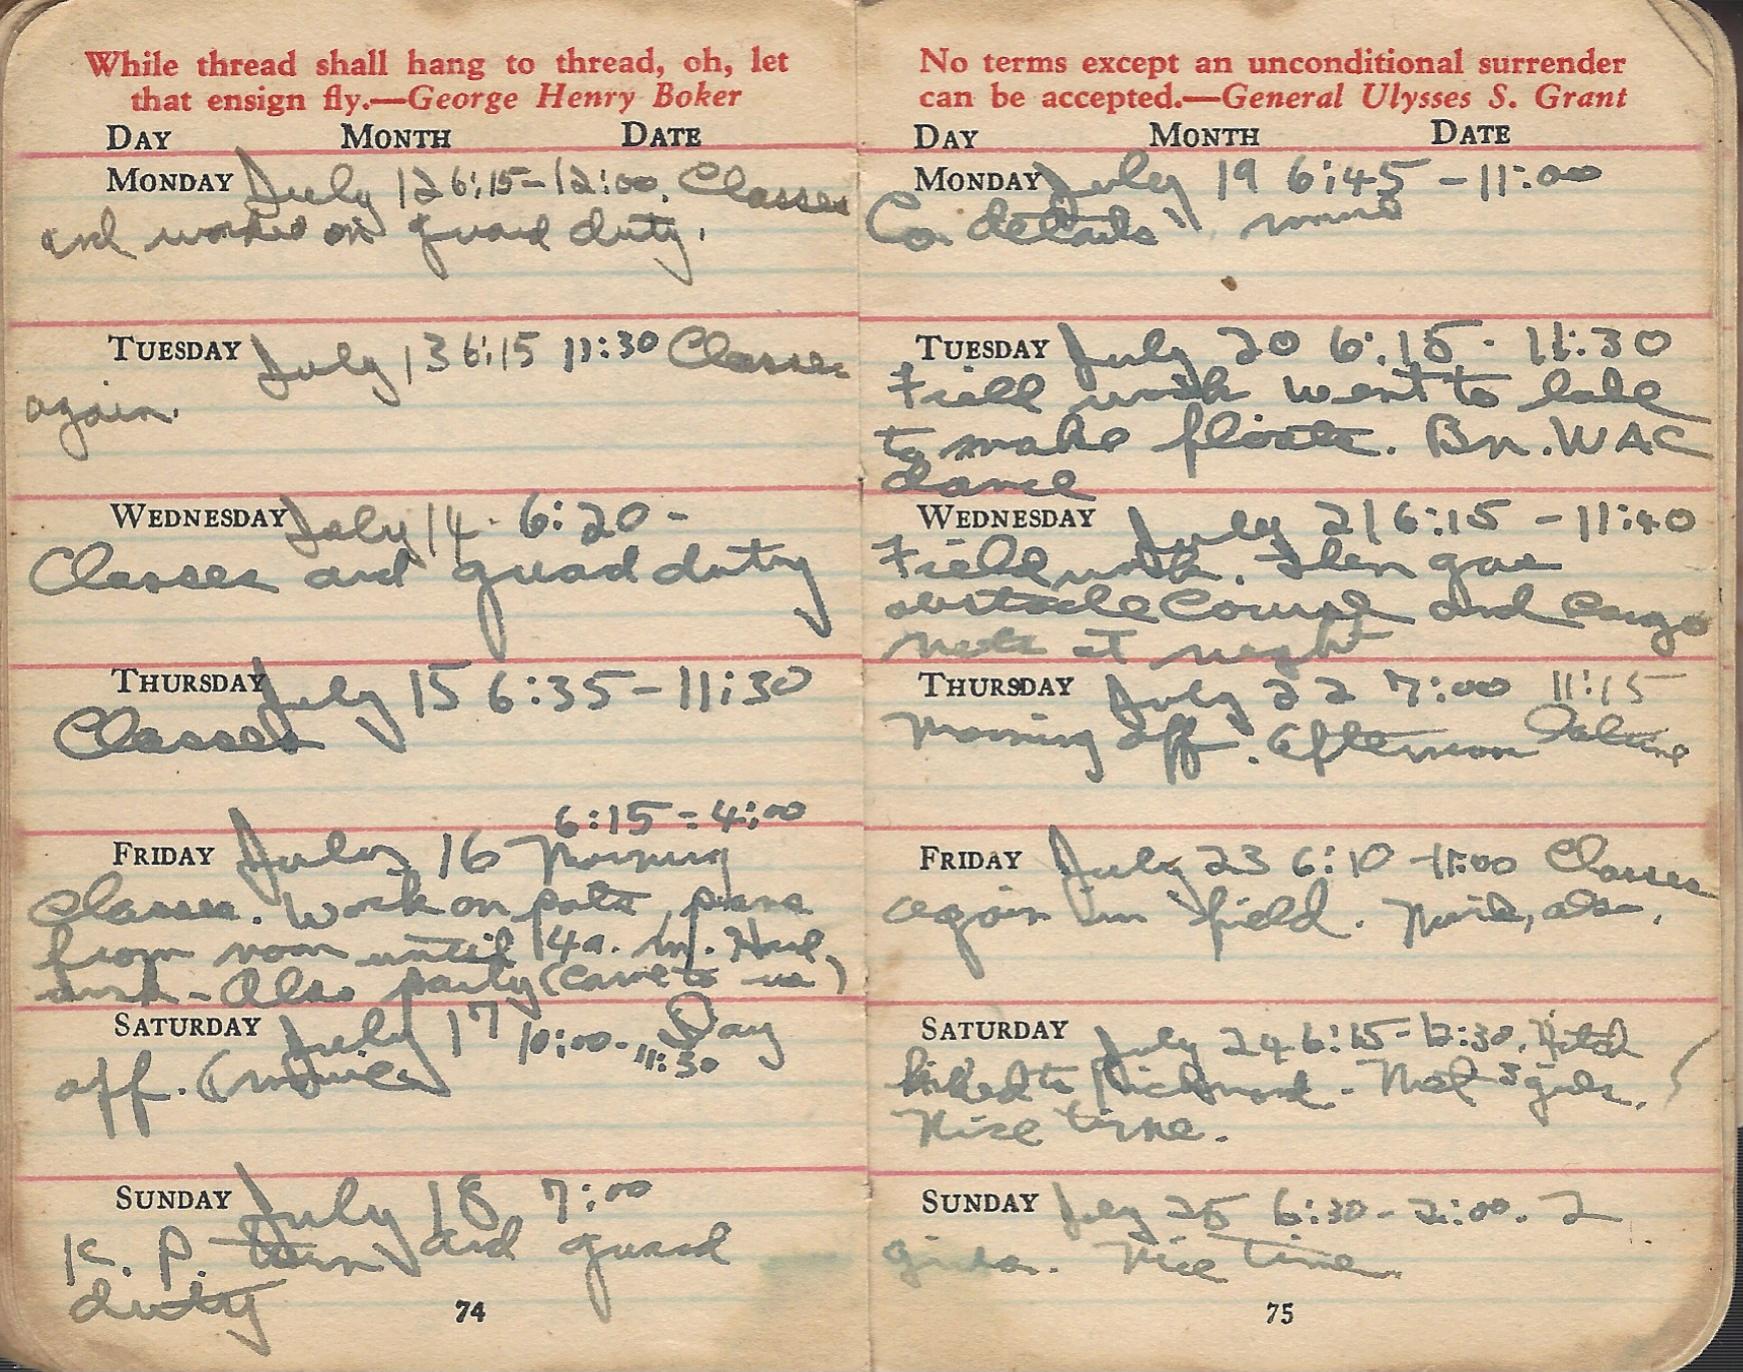 While thread shall hang to thread, oh, let
that ensign fly.—George Henry Boker
DAY MONTH DATE
MONDAY July 12 6:15-12:00. Classes
and worked on guard duty.
TUESDAY July 13 6:15 11:30 Classes
again.
WEDNESDAY July 14. 6:20-
Classes and guard duty
THURSDAY July 15 6:35-11:30
Classes
6:15-4:00
FRIDAY July 16 Morning
Classes. Work on pots, pans
from noon until 4 a.m. Hard
work-Also party (came to us)
SATURDAY July 17 10:00-11:30 Day
off. (movies)
SUNDAY July 18 7:00
K. P. and guard
duty
74
No terms except an unconditional surrender
can be accepted.—General Ulysses S. Grant
DAY MONTH DATE
MONDAY July 19 6:45-11:00
Co. details
TUESDAY July 20 6:15-11:30
Field work went to lake
to make floats. Bn. WAC
dance
WEDNESDAY July 21 6:15-11:40
Field work. Then gas
obstacle course and cargo
nets at night
THURSDAY July 22 7:00 11:15
Morning off. Afternoon
FRIDAY July 23 6:10-11:00 Classes
again in field. also.
SATURDAY July 24 6:15-12:30. Hitch
hiked to Richmond. Met 3 girls.
Nice time.
SUNDAY July 25 6:30-2:00. 2
girls. Nice time.
75